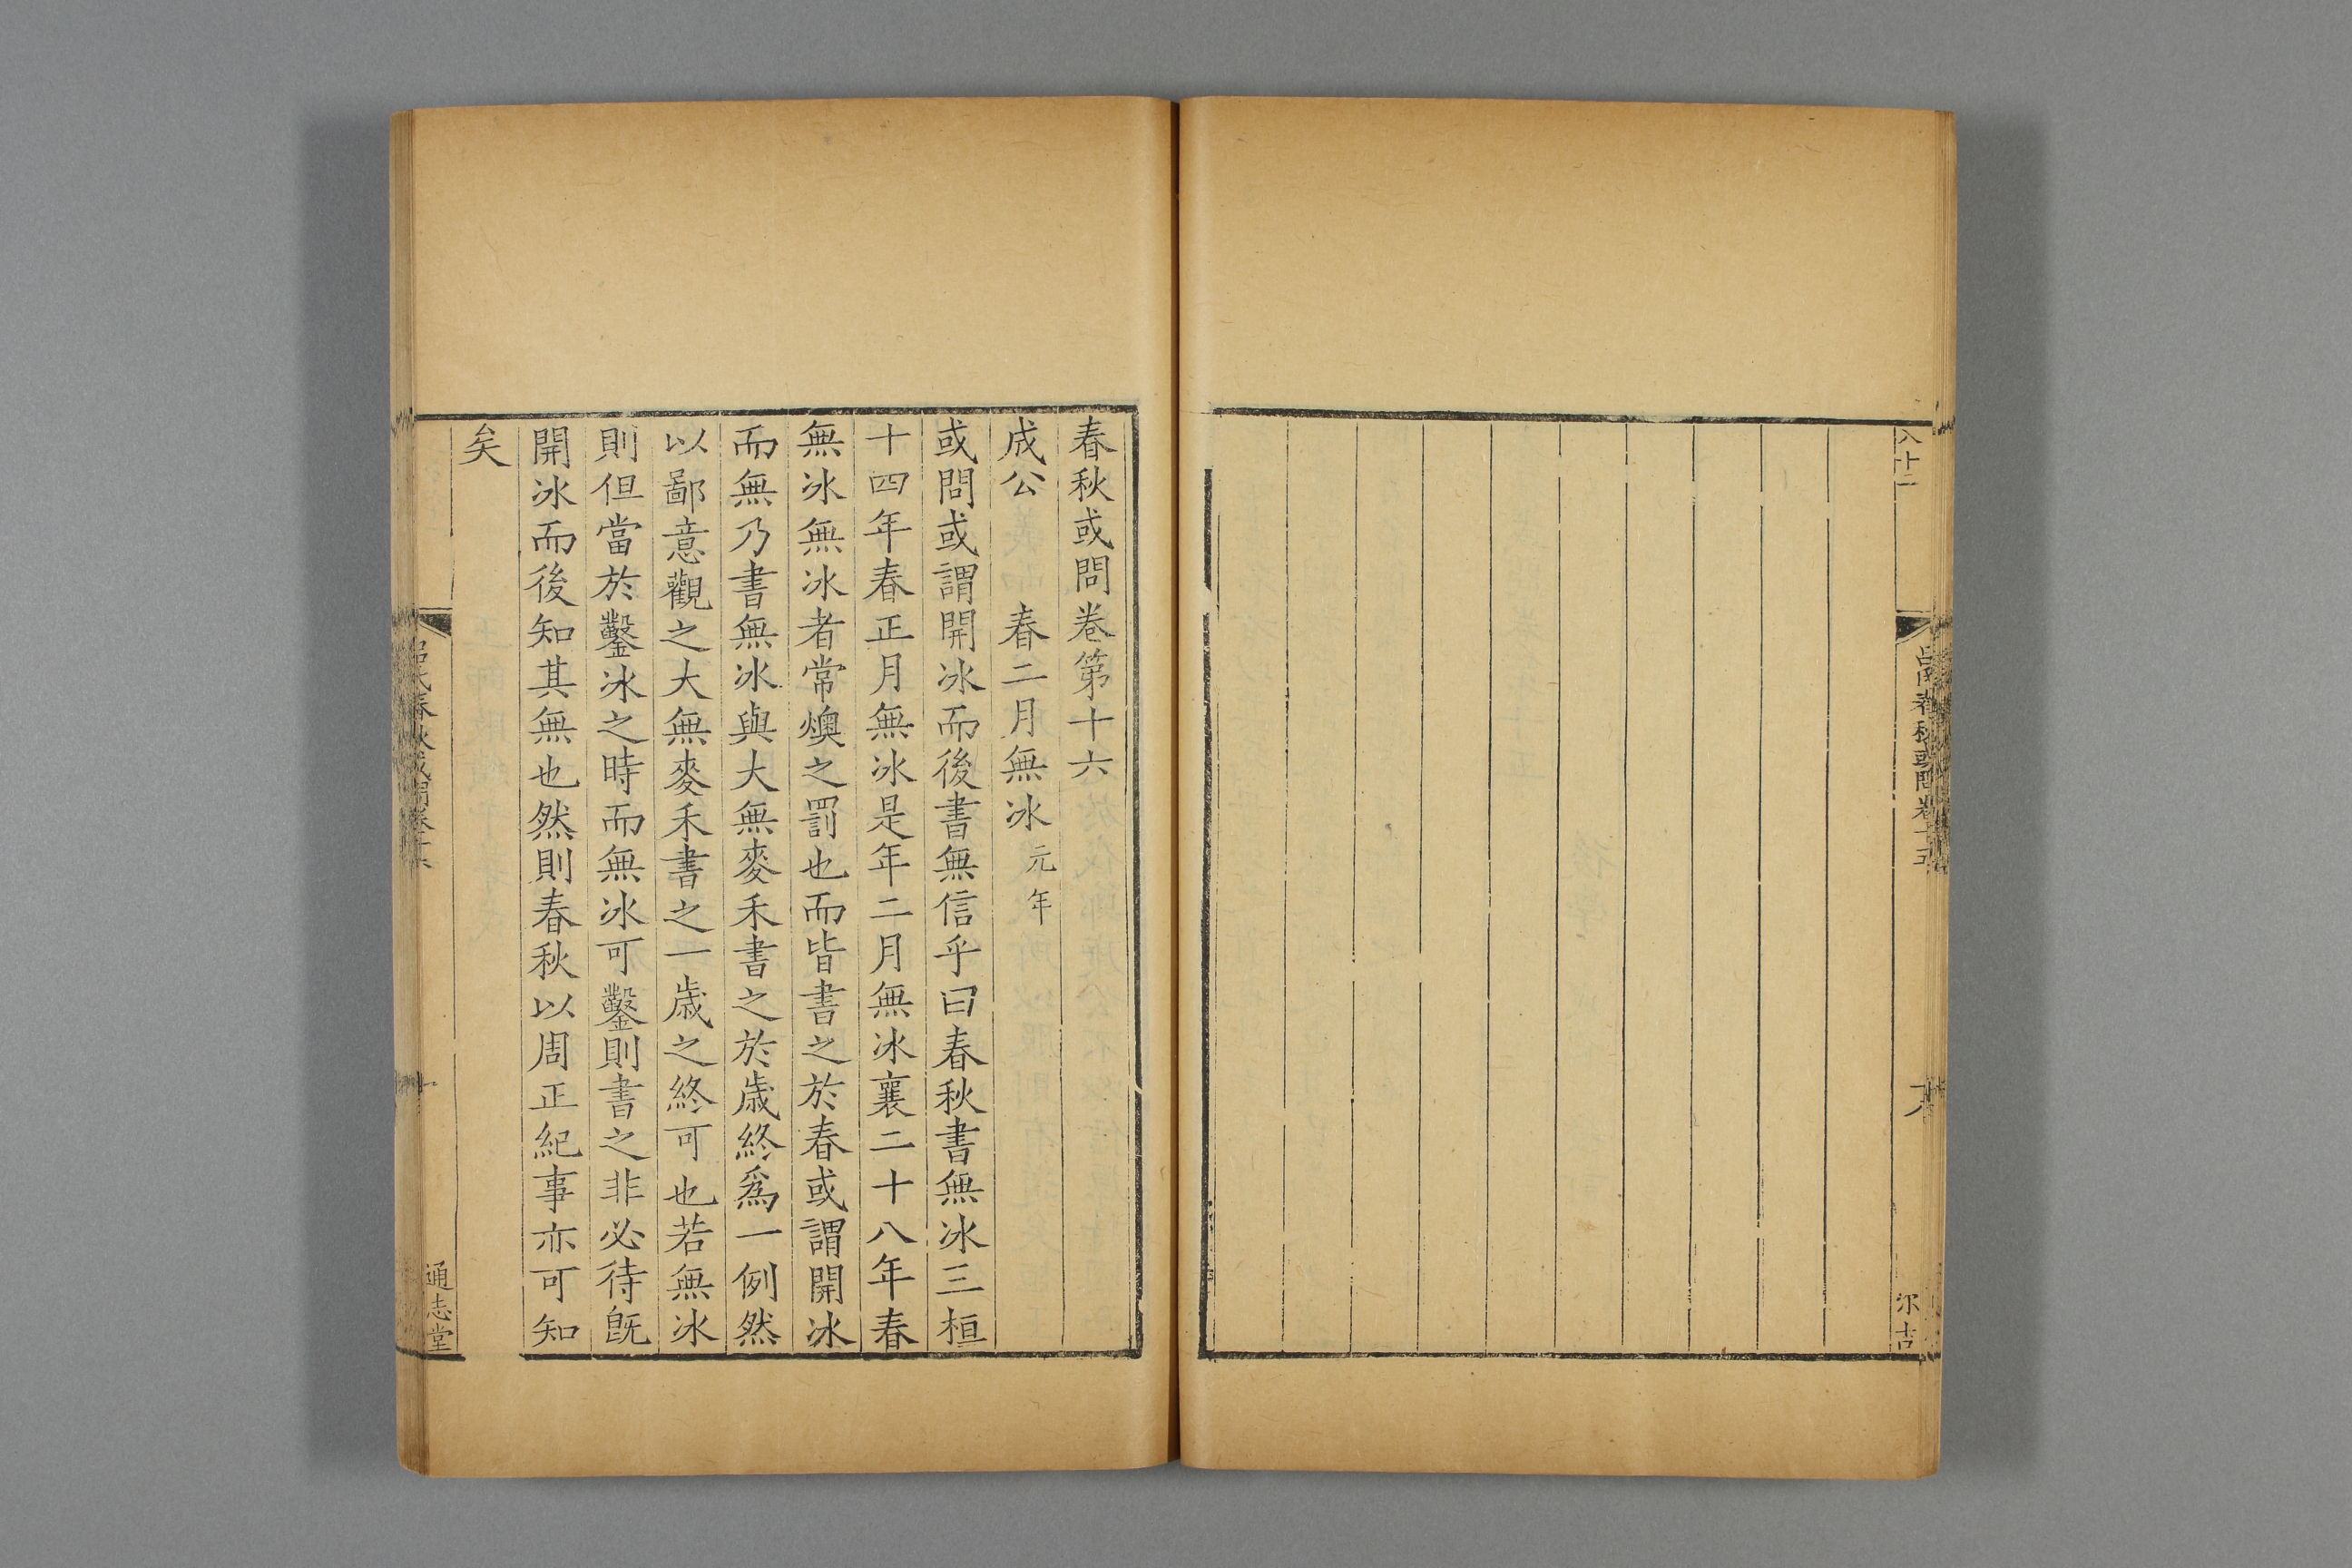 呂氏春秋或問卷十五
春秋或問卷第十六
成公　春二月無冰元年
或問或謂開冰而後書無信乎曰春秋書無冰三桓
十四年春正月無冰是年二月無冰襄二十八年春
無冰無冰者常燠之罰也而皆書之於春或謂開冰
而無乃書無冰與大無麥禾書之於歲終爲一例然
以鄙意觀之大無麥禾書之一歲之終可也若無冰
則但當於鑿冰之時而無冰可鑿則書之非必待旣
開冰而後知其無也然則春秋以周正紀事亦可知
矣
呂氏春秋或問卷十六
一
通志堂